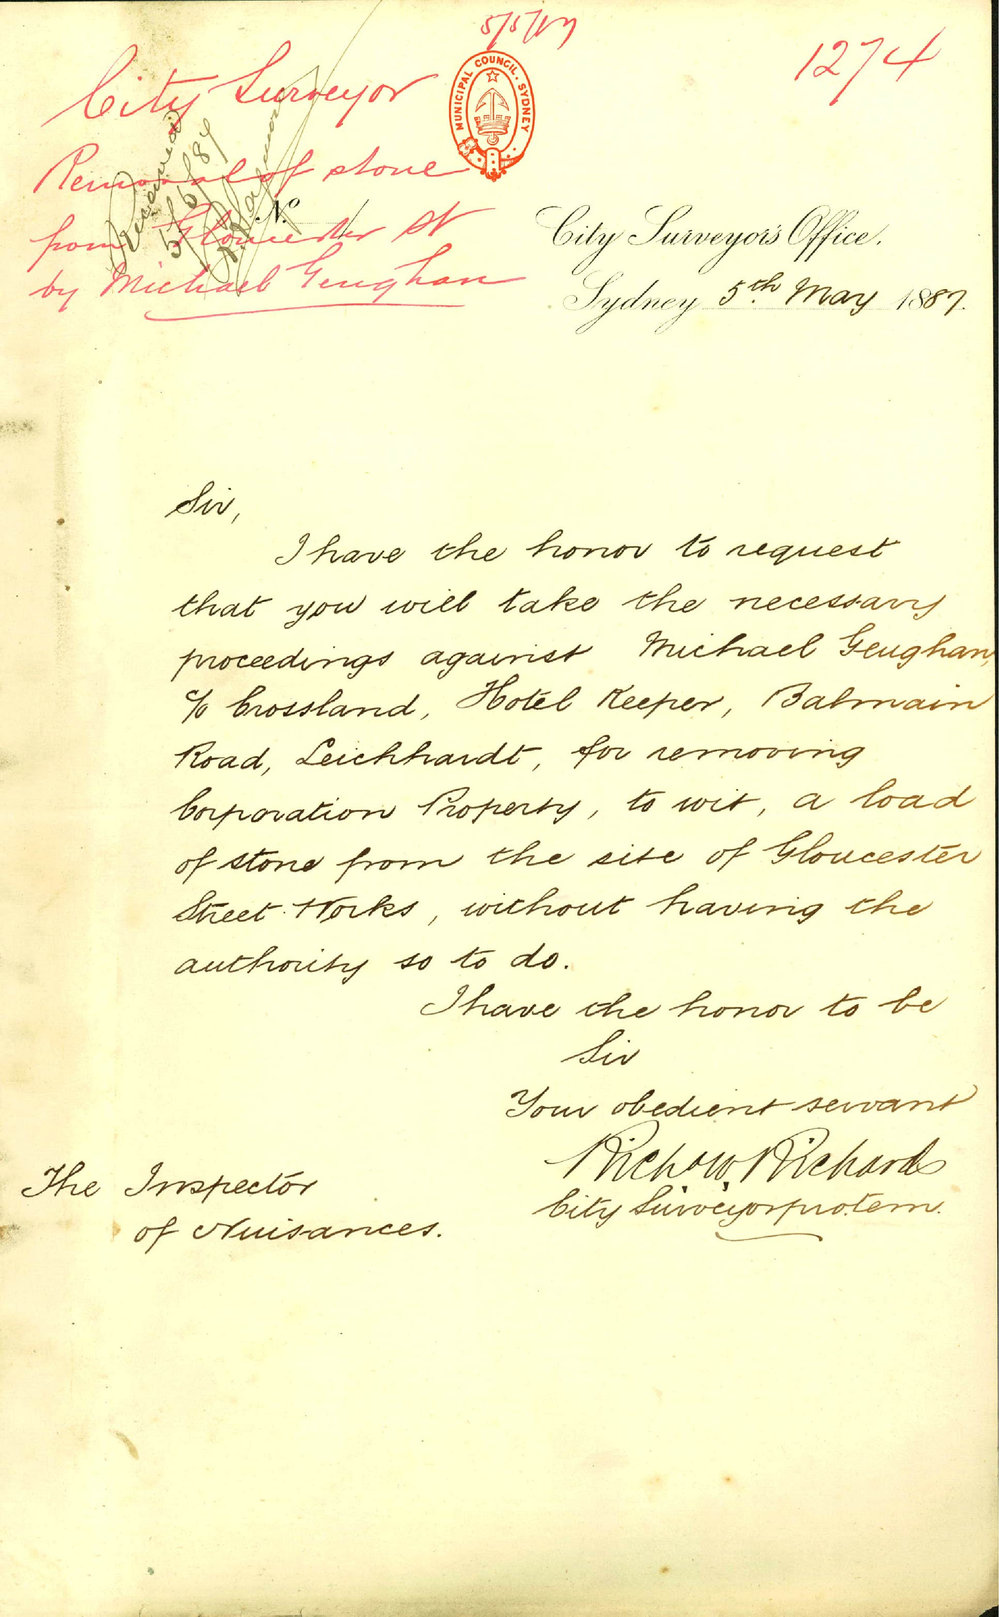 5/5/87
1274
City Surveyor
Removal of stone
from Gloucester St
by Michael Geughan
Received
5/6/87
MUNICIPAL COUNCIL. SYDNEY
No
City Surveyor's Office.
Sydney 5th May 1887.
Sir,
I have the honor to request
that you will take the necessary
proceedings against Michael Geughan,
c/o Crossland, Hotel Keeper, Balmain
Road, Leichhardt, for removing
Corporation Property, to wit, a load
of stone from the site of Gloucester
Street Works, without having the
authority so to do.
I have the honor to be
Sir
Your obedient servant
Richd W. Richards
City Surveyor pro. tem.
The Inspector
of Nuisances.